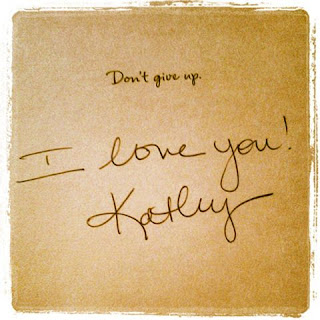 Don't give up.
I love you!
Kathy